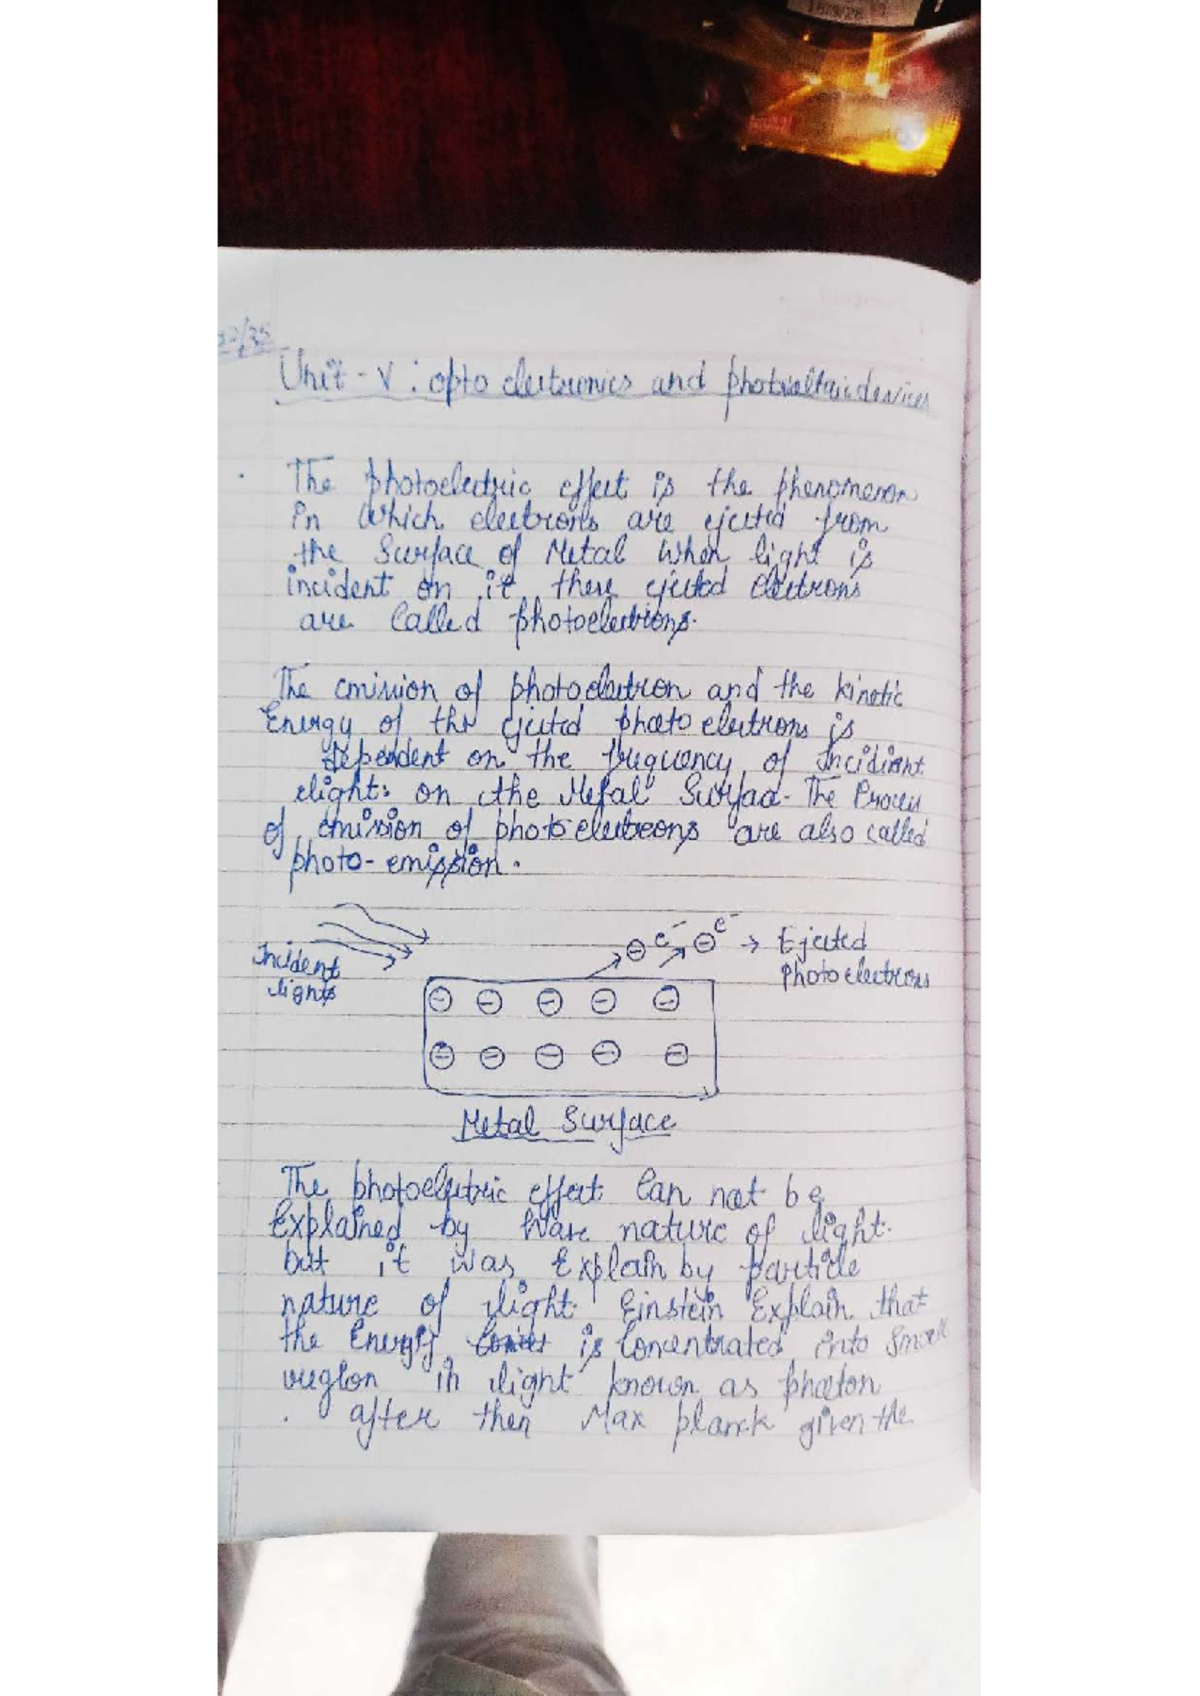 Unit - V : opto electronics and photovoltaic devices
The photoelectric effect is the phenomenon
in which electrons are ejected from
the Surface of Metal when light is
incident on it, these ejected electrons
are Called photoelectrons.
The emission of photoelectron and the kinetic
Energy of the ejected photo electrons is
dependent on the frequency of Incident
light: on the Metal Surface. The Process
of emission of photo electrons are also called
photo-emission.
e⁻ e⁻ → Ejected
Photoelectrons
Incident
lights
Metal Surface
The photoelectric effect Can not be
Explained by Wave nature of light.
but it was Explain by particle
nature of light. Einstein Explain that
the Energy is Concentrated into Small
region in light known as photon
. after then Max planck given the